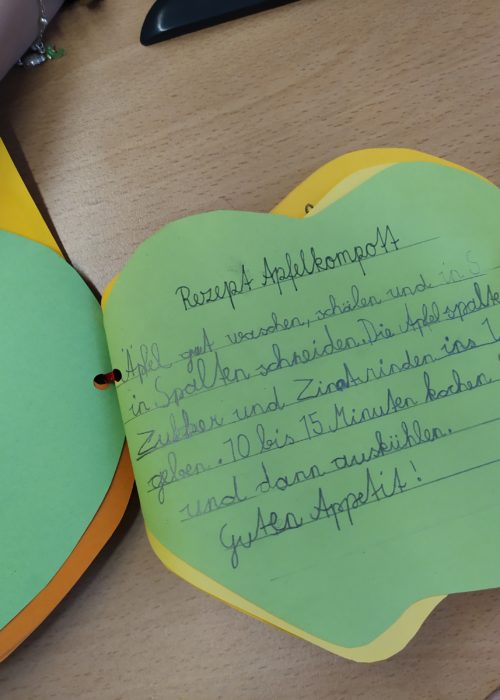 Rezept Apfelkompott
Äpfel gut waschen, schälen und in S
in Spalten schneiden. Die Apfelspalte
Zukker und Zimtrinden ins
geben. 10 bis 15 Minuten kochen
und dann auskühlen.
Guten Appetit!